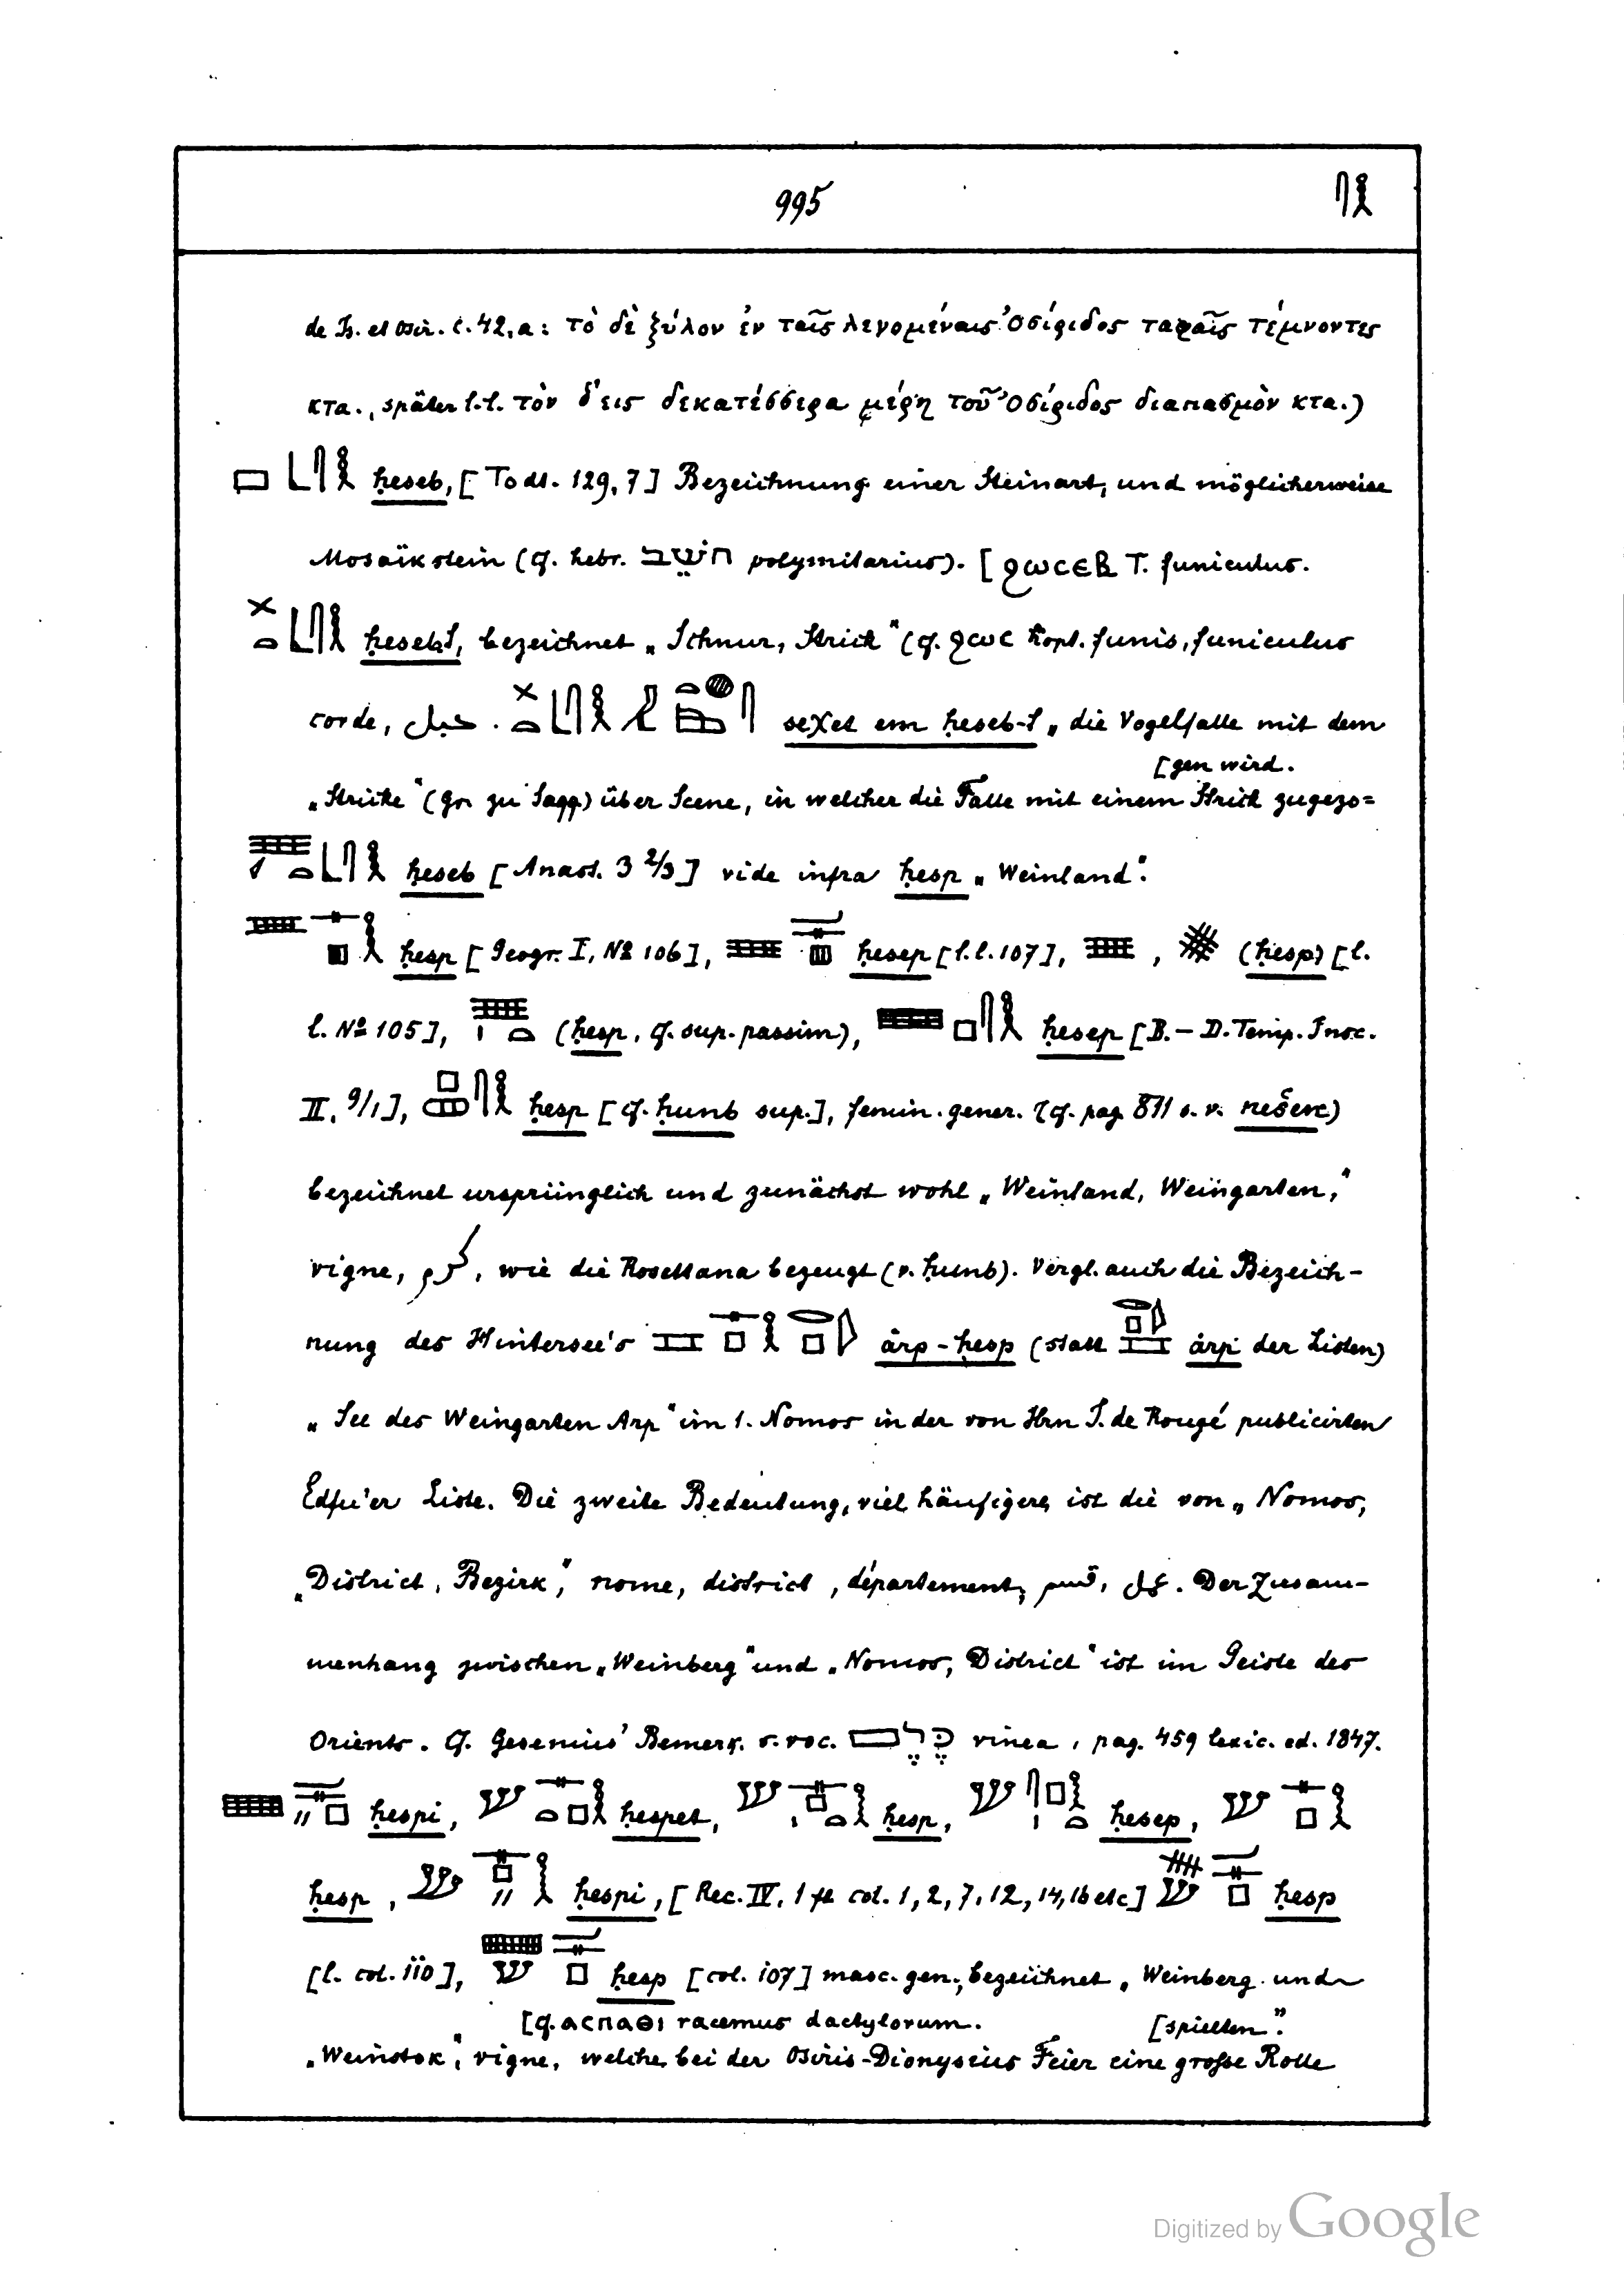 995 𓋴𓎛
de Is. et Osir. c. 42, a: τὸ δὲ ξύλον ἐν ταῖς λεγομέναις Ὀσίριδος ταφαῖς τέμνοντες
κτα., später l.l. τὸν δ'εις δεκατέσσερα μέρη τοῦ Ὀσίριδος διασπασμὸν κτα.)
ḥeseb, [Todt. 129, 7] Bezeichnung einer Steinart, und möglicherweise
Mosaïkstein (cf. hebr. חֹשֵׁב polymitarius). [ϩⲱⲥⲉⲃ T. funiculus.
ḥeseb.t, bezeichnet „Schnur, Strick“ (cf. ϩⲱⲥ kopt. funis, funiculus
corde, حبل. seχet em ḥeseb-t „die Vogelfalle mit dem
[gen wird.
„Stricke“ (Gr. zu Saqq) über Scene, in welcher die Falle mit einem Strick zugezo=
ḥeseb [Anast. 3 2/3] vide infra ḥesp „Weinland“.
ḥesp [Geogr. I, № 106], ḥesep [l.l. 107], , (ḥesp) [l.
l. № 105], (ḥesp, cf. sup. passim), ḥesep [B.–D. Temp. Insc.
II, 9/1], ḥesp [cf. ḥunb sup.], femin. gener. (cf. pag 811 s. v. nešen)
bezeichnet ursprünglich und zunächst wohl „Weinland, Weingarten,“
vigne, كرم, wie die Rosettana bezeugt (v. ḥunb). Vergl. auch die Bezeich-
nung des Hintersee's ȧrp-ḥesp (statt ȧrp der Listen)
„See des Weingarten Arp“ im 1. Nomos in der von Hrn J. de Rougé publicirten
Edfu'er Liste. Die zweite Bedeutung, viel häufigere ist die von „Nomos,
„District, Bezirk“, nome, district, département, قسم, عمل. Der Zusam-
menhang zwischen „Weinberg“ und „Nomos, District“ ist im Geiste des
Orients. Cf. Gesenius' Bemerk. s. voc. כֶּרֶם vinea, pag. 459 lexic. ed. 1847.
ḥespi, ḥespet, ḥesp, ḥesep,
ḥesp, ḥespi, [Rec. IV, 1 fl. col. 1, 2, 7, 12, 14, 16 etc] ḥesp
[l. col. 110], ḥesp [col. 107] masc. gen., bezeichnet „Weinberg und
[cf. ⲁⲥⲡⲁⲑⲓ racemus dactylorum. [spielten“.
„Weinstok“, vigne, welche bei der Osiris-Dionysius Feier eine grosse Rolle
Digitized by Google